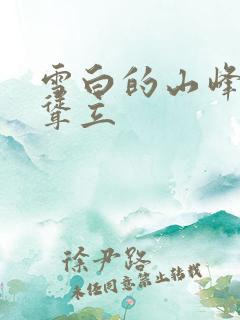 雪白的山峰
耸立
徐尹路
未经同意禁止转载